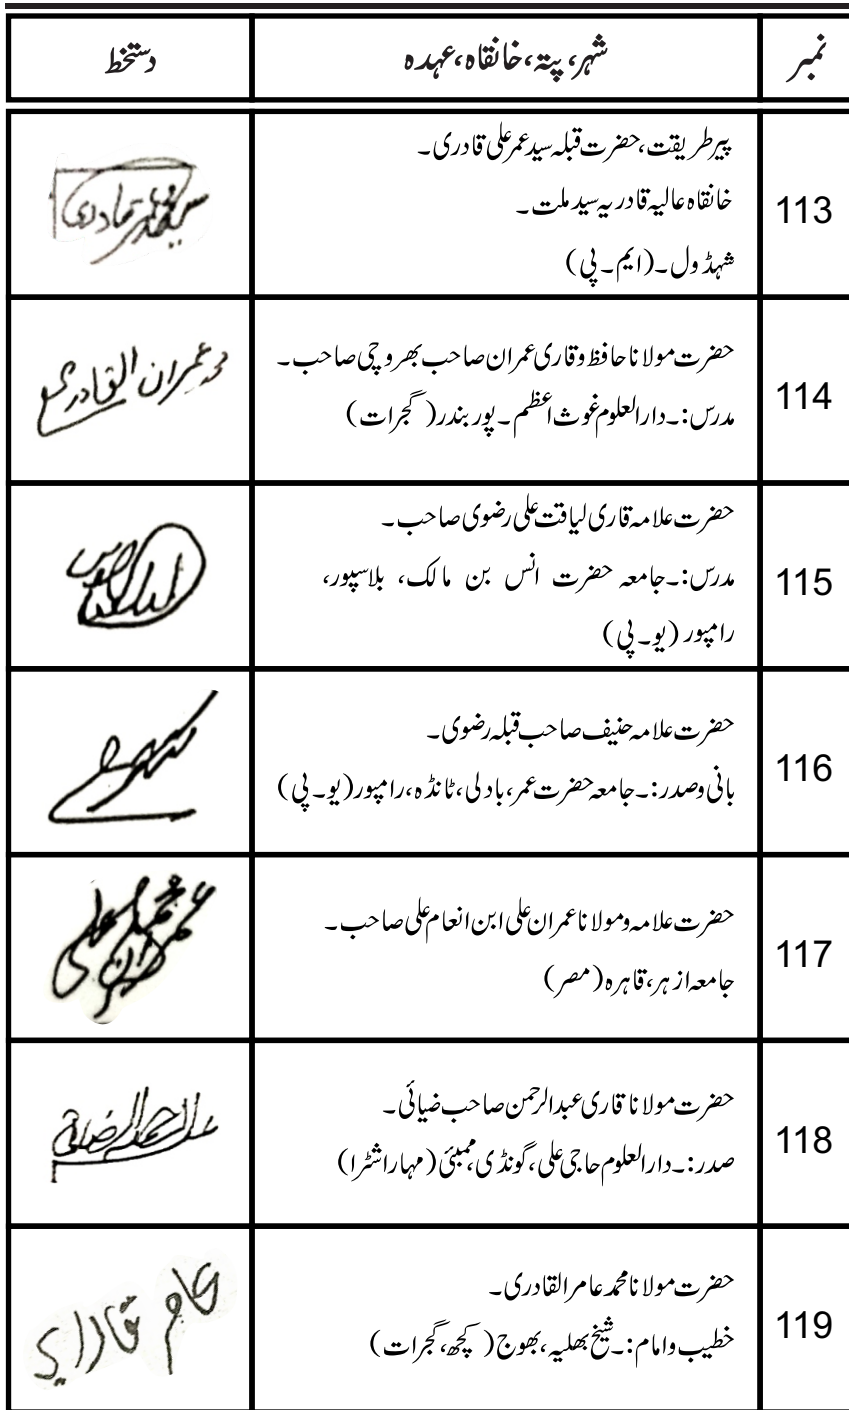 نمبر شہر، پتہ، خانقاہ، عہدہ دستخط
113 پیر طریقت، حضرت قبلہ سید عمر علی قادری۔
خانقاہ عالیہ قادریہ سید ملت۔
شہڈول۔ (ایم۔ پی)
114 حضرت مولانا حافظ وقاری عمران صاحب بھروچی صاحب۔
مدرس:۔ دارالعلوم غوث اعظم۔ پور بندر (گجرات)
محمد عمران القادری
115 حضرت علامہ قاری لیاقت علی رضوی صاحب۔
مدرس:۔ جامعہ حضرت انس بن مالک، بلاسپور،
رامپور (یو۔ پی)
116 حضرت علامہ حنیف صاحب قبلہ رضوی۔
بانی وصدر:۔ جامعہ حضرت عمر، بادلی، ٹانڈہ، رامپور (یو۔ پی)
117 حضرت علامہ ومولانا عمران علی ابن انعام علی صاحب۔
جامعہ ازہر، قاہرہ (مصر)
118 حضرت مولانا قاری عبدالرحمن صاحب ضیائی۔
صدر:۔ دارالعلوم حاجی علی، گونڈی، ممبئی (مہاراشٹرا)
عبدالرحمن ضیائی
119 حضرت مولانا محمد عامر القادری۔
خطیب وامام:۔ شیخ بھلیہ، بھوج (کچھ، گجرات)
عامر قادری